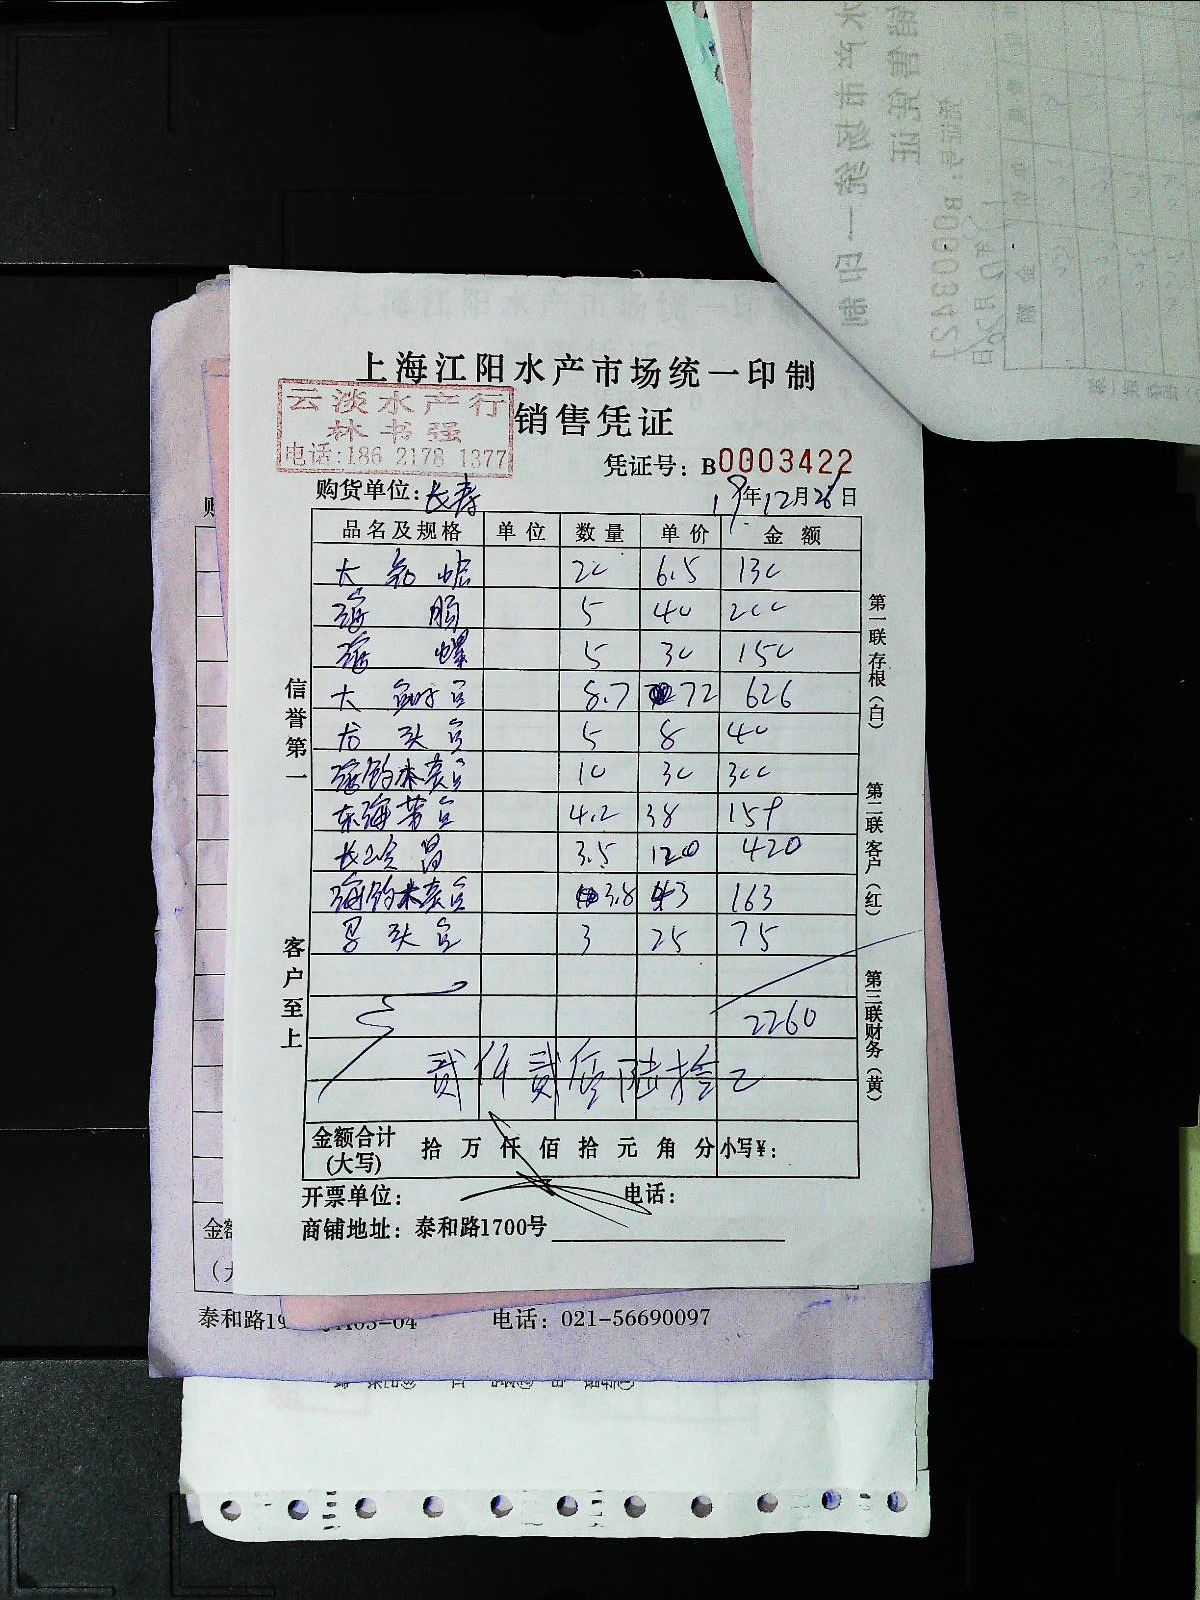 上海江阳水产市场统一印制
云淡水产行
林书强
电话:186 2178 1377
销售凭证
凭证号: B0003422
购货单位: 长寿 19年12月26日
品名及规格 单位 数量 单价 金额
20 6.5 130
海肠 5 40 200
海螺 5 30 150
大 72 626
8.7
龙头鱼 5 8 40
海钓米袁鱼 10 30 300
东海带鱼 4.2 38 159
昌 3.5 120 420
海钓米袁鱼 3.8 43 163
头鱼 3 25 75
2260
贰仟贰佰陆拾
金额合计 拾 万 仟 佰 拾 元 角 分 小写¥:
(大写)
开票单位: 电话:
商铺地址: 泰和路1700号
信誉第一
客户至上
第一联存根(白)
第二联客户(红)
第三联财务(黄)
泰和路19
电话: 021-56690097
B0003421